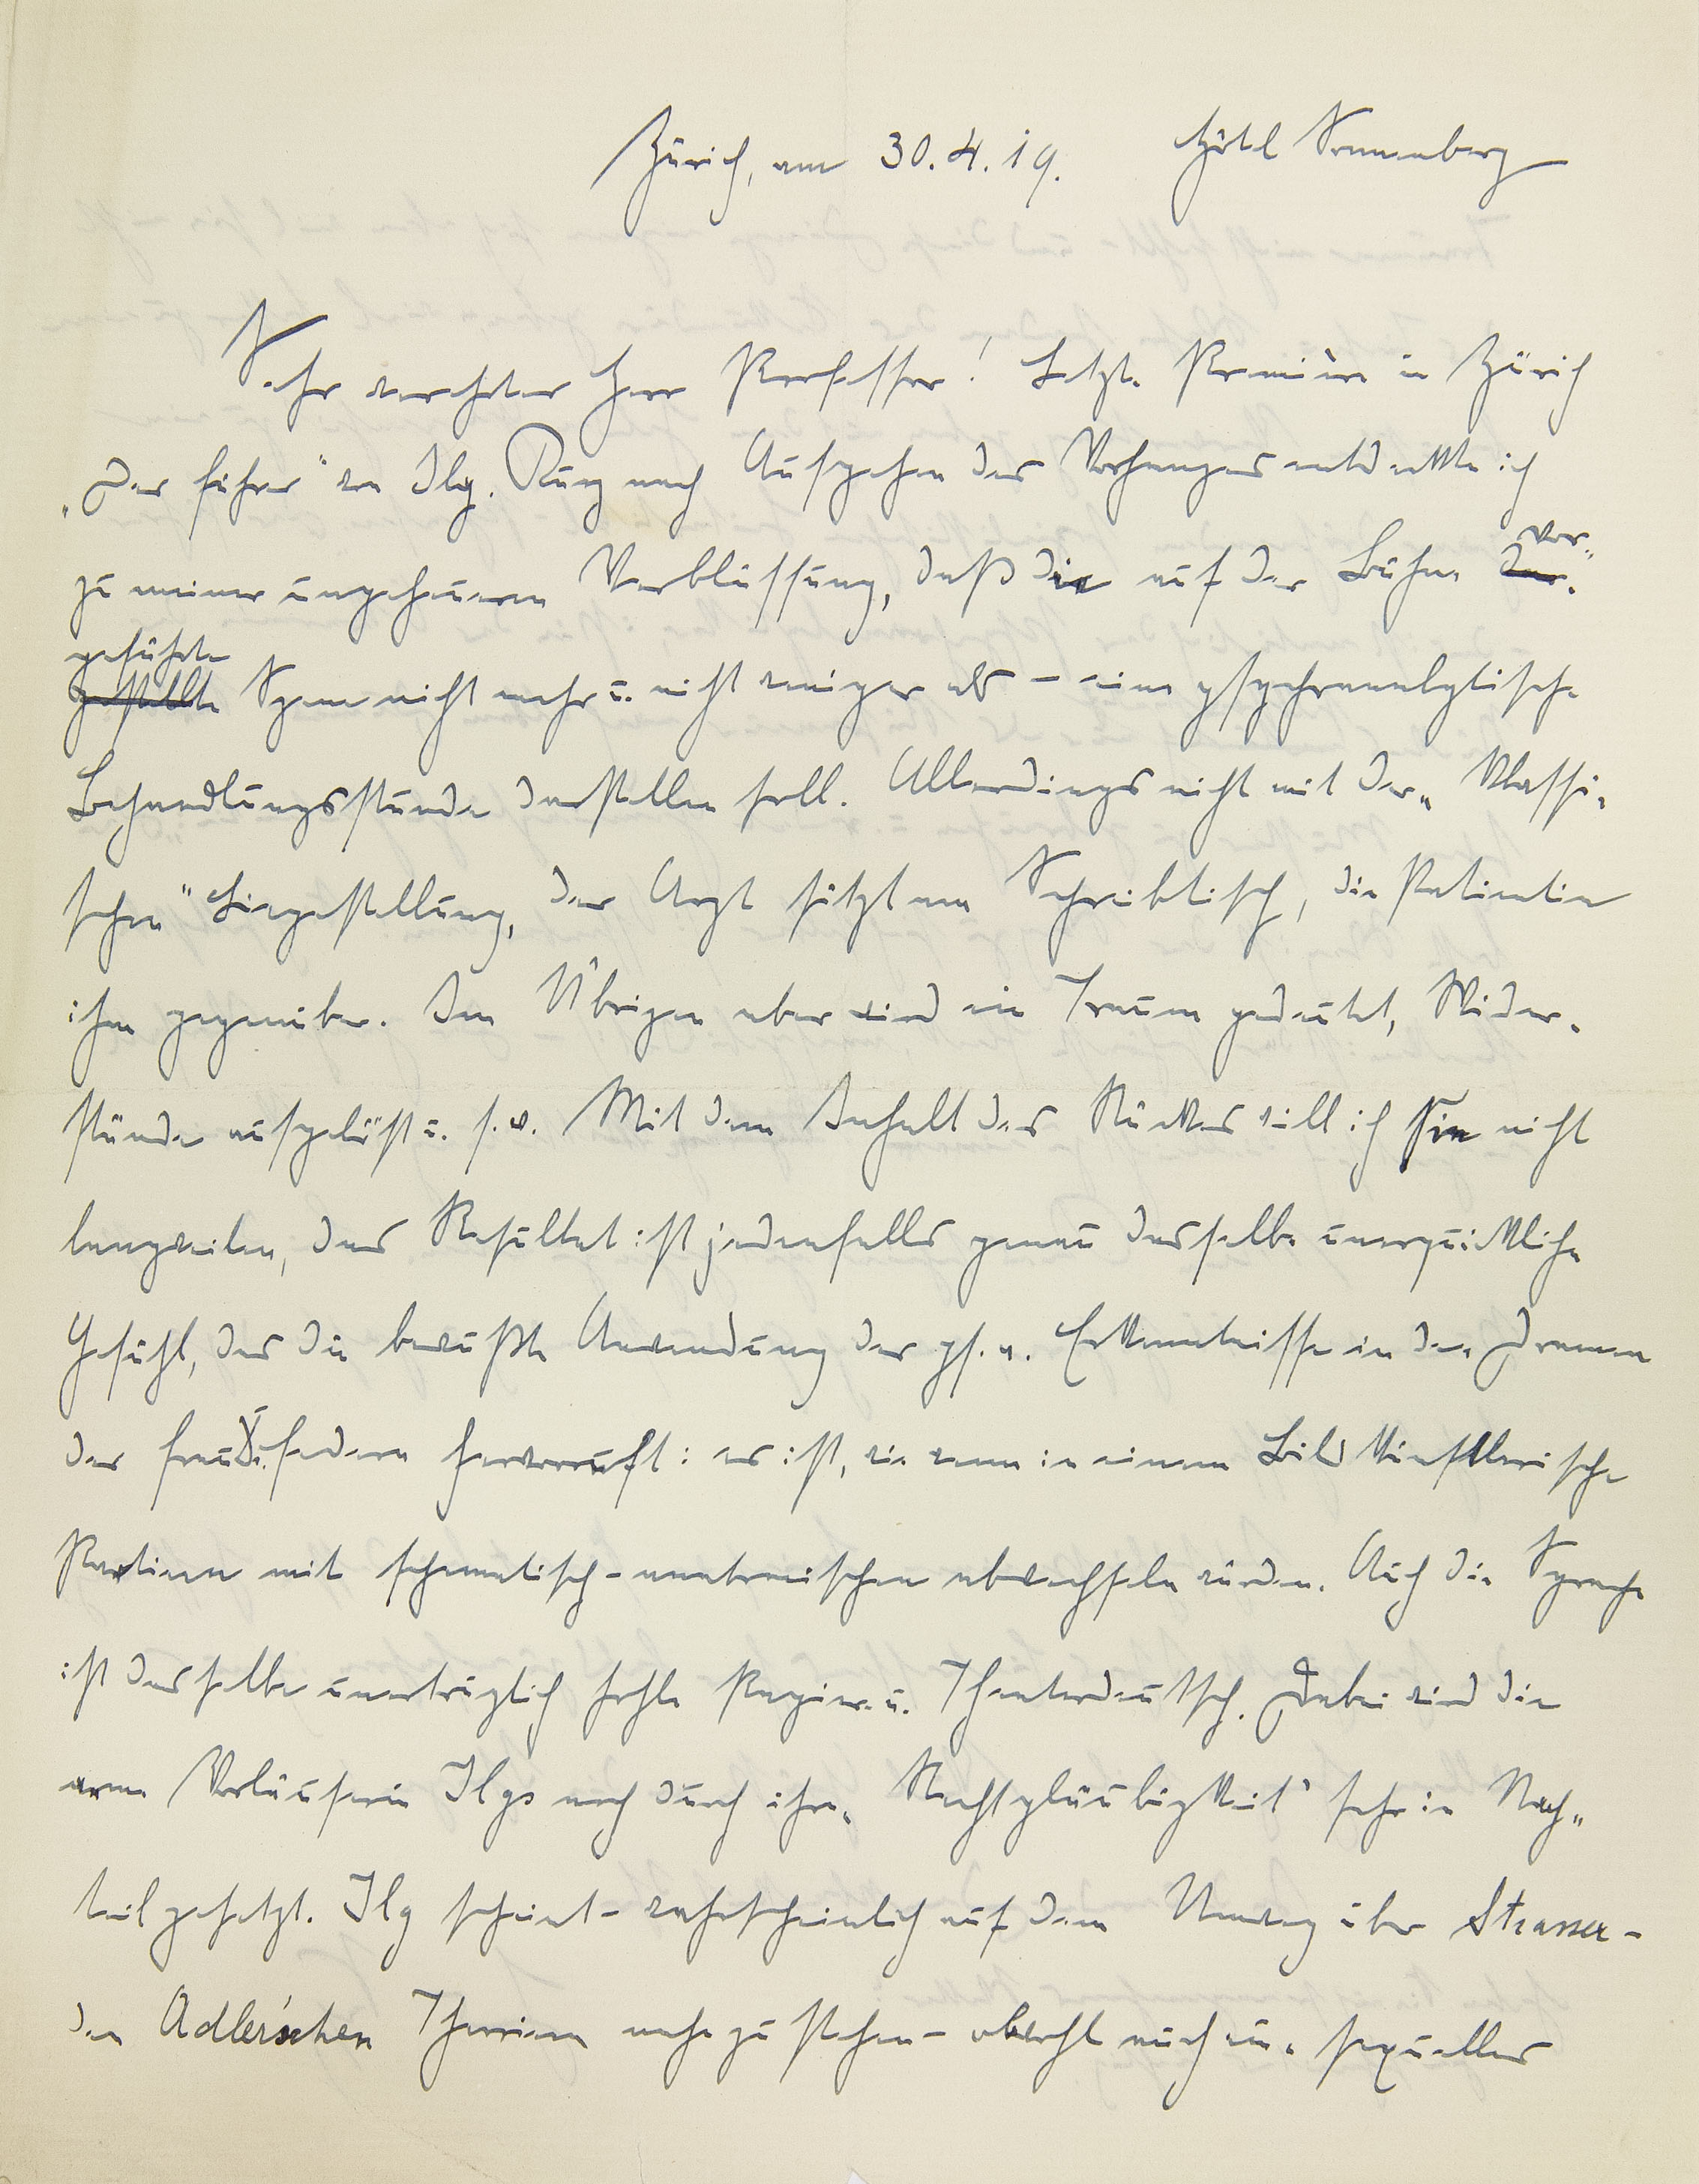 Zürich, am 30.4.19. Hôtel Sonnenberg
Sehr verehrter Herr Professor! Letzte Première in Zürich
„Der Führer“ von Ilg. Kurz nach Aufgehen des Vorhanges entdeckte ich
zu meiner ungeheuren Verblüffung, daß die auf der Bühne dar- vor-
geführte
gestellte Szene nicht mehr u. nicht weniger als – eine psychoanalytische
Behandlungsstunde darstellen soll. Allerdings nicht mit der „klassi-
schen“ Liegestellung, der Arzt sitzt am Schreibtisch, die Patientin
ihm gegenüber. Im Übrigen aber wird ein Traum gedeutet, Wider-
stände aufgelöst u. s. w. Mit dem Inhalt des Stückes will ich Sie nicht
langweilen, das Resultat ist jedenfalls genau dasselbe unerquickliche
Gefühl, das die bewußte Anwendung der ps. a. Erkenntnisse in den Dramen
der hervorruft: es ist, wie wenn in einem Bild künstlerische
Partieen mit schematisch-anatomischen abwechseln würden. Auch die Sprache
ist dasselbe unerträglich hohle Papier- u. Theaterdeutsch. Dabei wird die
arme Vorläuferin Ilgs noch durch ihre „Rechtgläubigkeit“ sehr in Nach-
teil gesetzt. Ilg scheint – wahrscheinlich auf dem Umweg über Strasser –
den Adler'schen Theorien nahe zu stehen – obwohl auch ein sexuelles